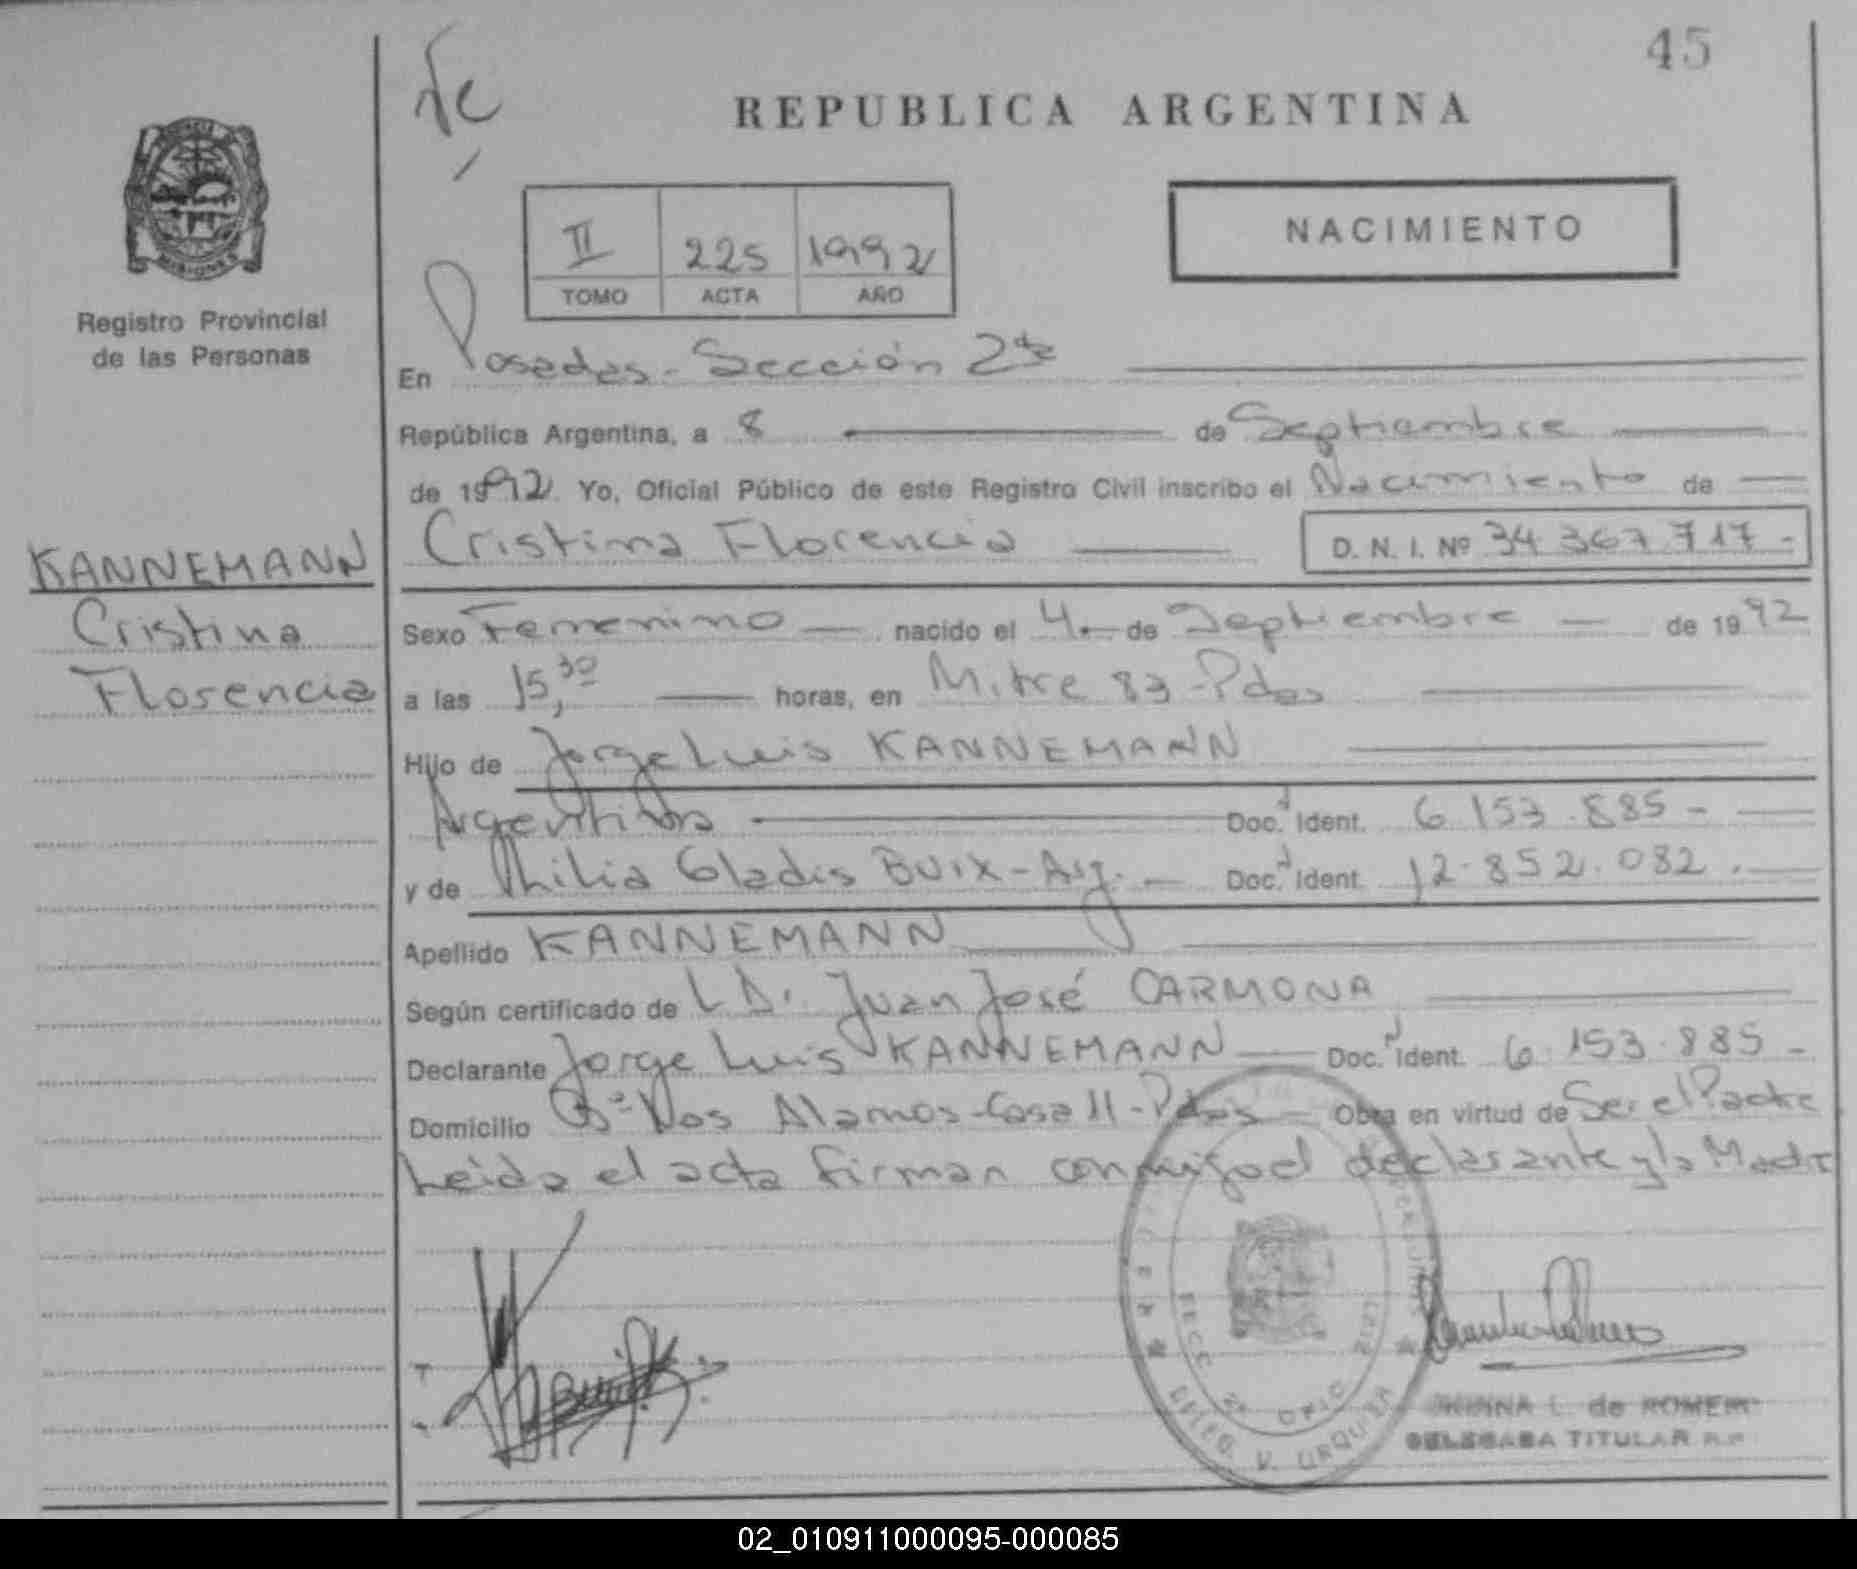 45
REPUBLICA ARGENTINA
NACIMIENTO
II 225 1992
TOMO ACTA AÑO
MISIONES
Registro Provincial
de las Personas
En Posadas - Sección 2da
República Argentina, a 8 de Septiembre
de 1992. Yo, Oficial Público de este Registro Civil inscribo el Nacimiento de
Cristina Florencia D. N. I. Nº 34 367 717 -
KANNEMANN
Cristina
Florencia
Sexo Femenino nacido el 4 de Septiembre de 1992
a las 15,30 horas, en Mitre 83 - Pdas
Hijo de Jorge Luis KANNEMANN
Argentina Doc. Ident. 6 153.885 -
y de Gladis BUIX - Arg. - Doc. Ident. 12.852.082.
Apellido KANNEMANN
Según certificado de Juan José CARMONA
Declarante Jorge Luis KANNEMANN Doc. Ident. 6.153.885 -
Domicilio Bº Los Alamos - Casa 11 - Pdas Obra en virtud de Ser el Padre
Leida el acta firman conmigo el declarante y la Madre
SECC 2ª OFIC
DELEG. V. URQUIZA
L. de ROMERO
DELEGADA TITULAR R.P.
02_010911000095-000085